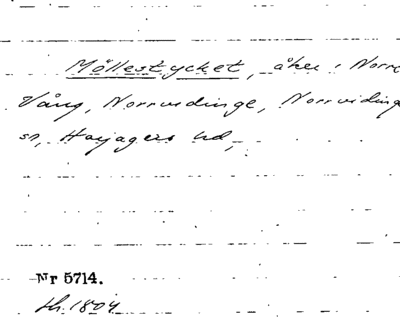 Möllestycket, åker i Norra
Vång, Norrvidinge, Norrvidinge
sn, Harjagers hd,
Nr 5714.
1804